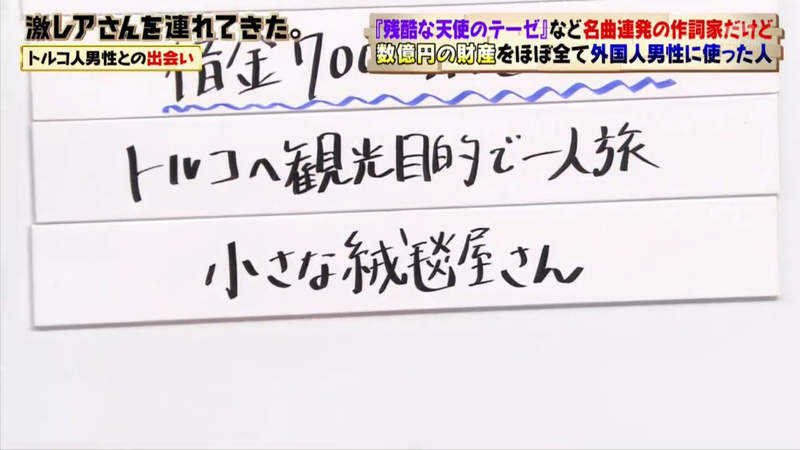 激レアさんを連れてきた。
トルコ人男性との出会い
『残酷な天使のテーゼ』など名曲連発の作詞家だけど
数億円の財産をほぼ全て外国人男性に使った人
金700
トルコへ観光目的で一人旅
小さな絨毯屋さん